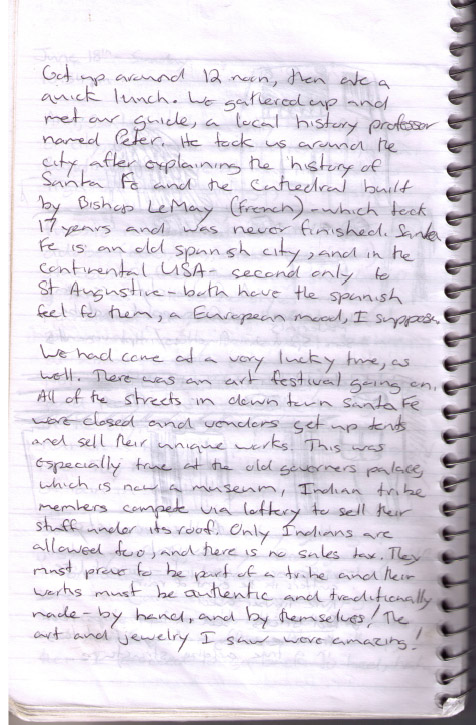 Got up around 12 noon, then ate a
quick lunch. We gathered up and
met our guide, a local history professor
named Peter. He took us around the
city after explaining the history of
Santa Fe and the Cathedral built
by Bishop LeMay (French) - which took
17 years and was never finished. Santa
Fe is an old spanish city, and in the
continental USA - second only to
St Augustine - both have the spanish
feel to them, a European mood, I suppose.
We had come at a very lucky time, as
well. There was an art festival going on.
All of the streets in down town Santa Fe
were closed and vendors set up tents
and sell their unique works. This was
especially true at the old governers palace,
which is now a museum, Indian tribe
members compete via lottery to sell their
stuff under its roof. Only Indians are
allowed too, and there is no sales tax. They
must prove to be part of a tribe and their
works must be authentic and traditionally
made - by hand, and by themselves! The
art and jewelry I saw were amazing!